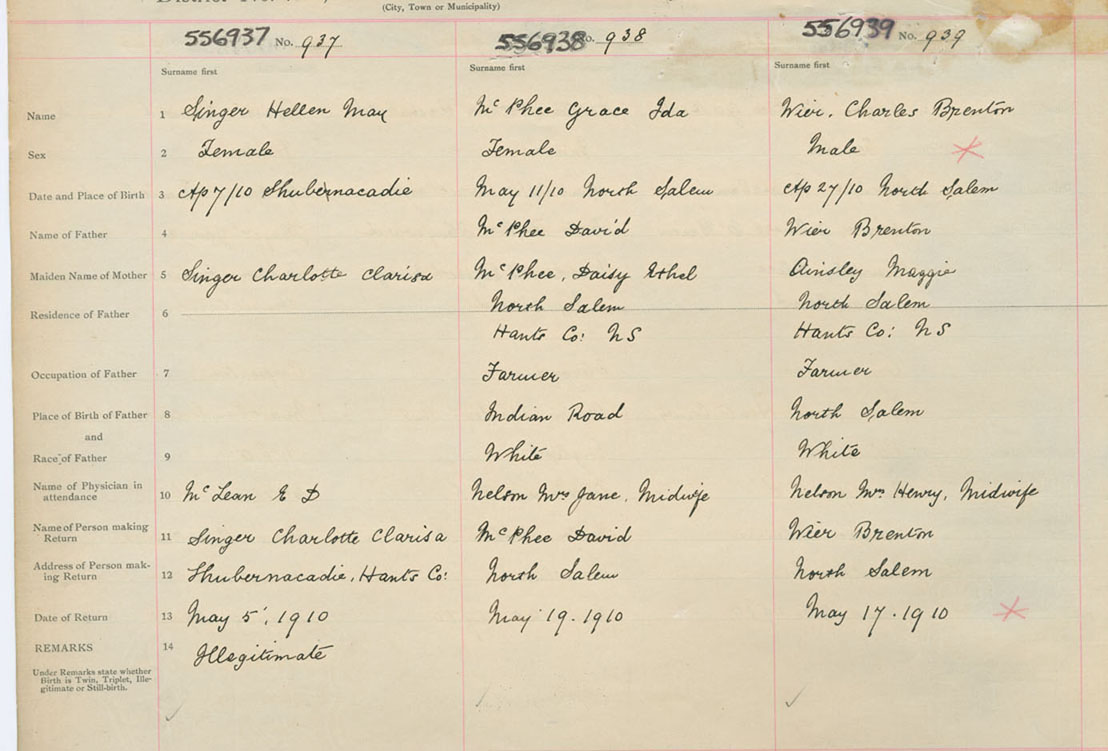 (City, Town or Municipality)
556937 No. 937 556938 No. 938 556939 No. 939
Surname first Surname first Surname first
Name 1 Singer Hellen May Mc Phee Grace Ida Wier, Charles Brenton
Sex 2 Female Female Male
Date and Place of Birth 3 Ap 7/10 Shubernacadie May 11/10 North Salem Ap 27/10 North Salem
Name of Father 4 Mc Phee David Wier Brenton
Maiden Name of Mother 5 Singer Charlotte Clarisa Mc Phee, Daisy Ethel Ainsley Maggie
Residence of Father 6 North Salem North Salem
Hants Co: NS Hants Co: NS
Occupation of Father 7 Farmer Farmer
Place of Birth of Father 8 Indian Road North Salem
and
Race of Father 9 White White
Name of Physician in
attendance 10 Mc Lean E D Nelson Mrs Jane, Midwife Nelson Mrs Henry, Midwife
Name of Person making
Return 11 Singer Charlotte Clarisa Mc Phee David Wier Brenton
Address of Person mak-
ing Return 12 Shubernacadie, Hants Co: North Salem North Salem
Date of Return 13 May 5, 1910 May 19. 1910 May 17. 1910
REMARKS 14 Illegitimate
Under Remarks state whether
Birth is Twin, Triplet, Ille-
gitimate or Still-birth.